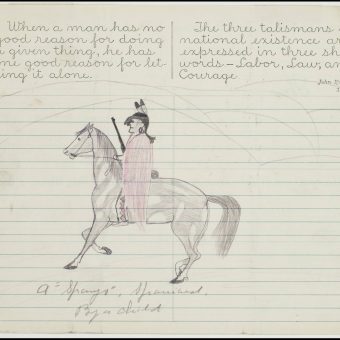 When a man has no
good reason for doing
a given thing, he has
one good reason for let-
ting it alone.
The three talismans
national existence are
expressed in three sh
words—Labor, Law, an
Courage
John
a "Spanyo", Spaniard.
By a child